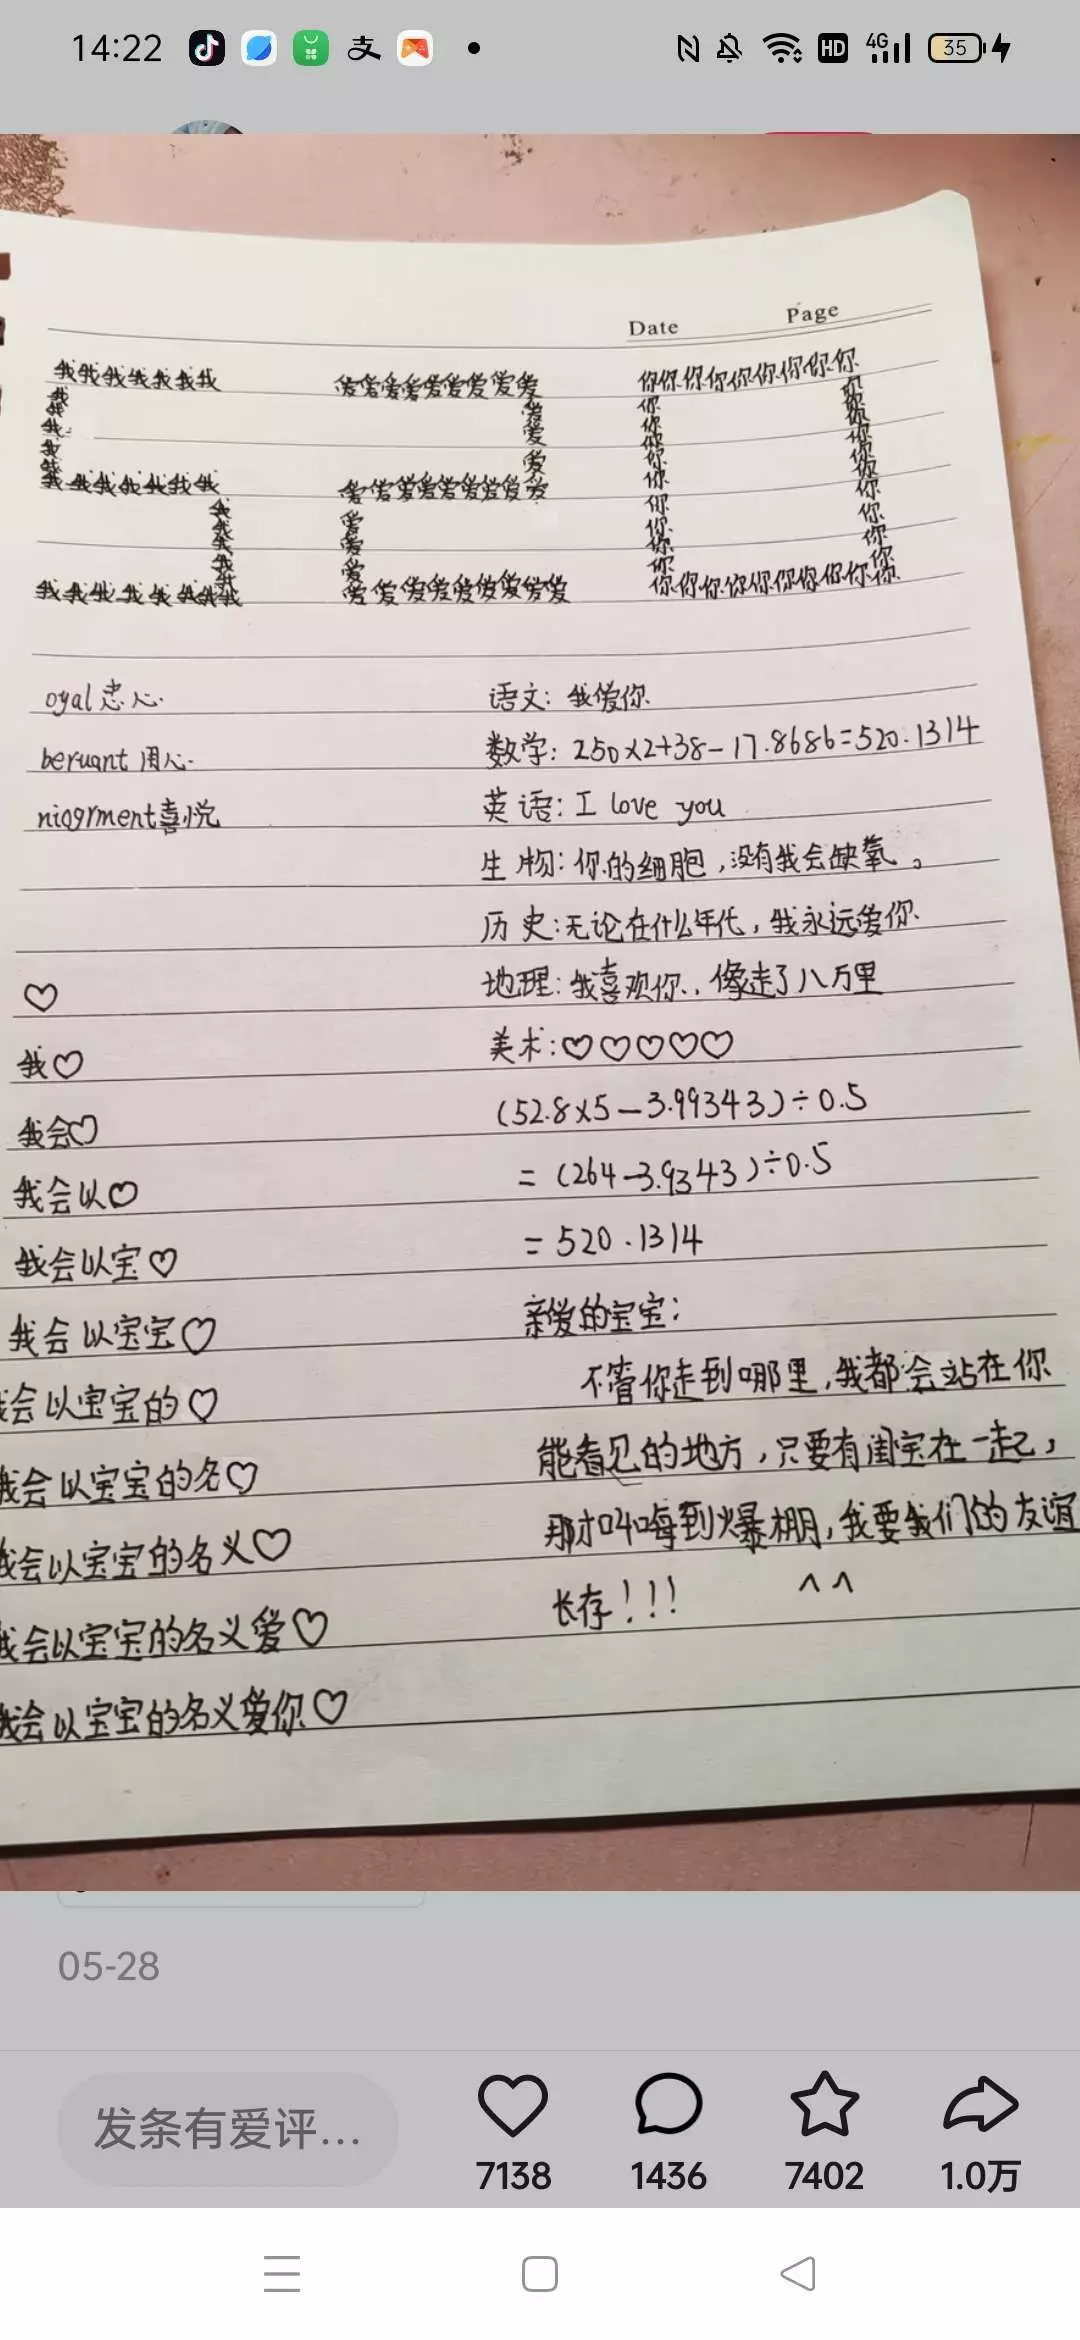 14:22
HD
4G
35
Date Page
我我我我我我我 爱爱爱爱爱爱爱爱爱 你你你你你你你你你
我 爱 你 你
我 爱 你 你
我 爱 你 你
我 你 你
我 你 你
我我我我我我我 爱爱爱爱爱爱爱爱爱 你 你
我 爱 你 你
我 爱 你 你
我 爱 你 你
我 你 你
我我我我我我我我 爱爱爱爱爱爱爱爱爱 你你你你你你你你你你
oyal忠心. 语文: 我爱你
beruant 用心. 数学: 250×2+38-17.8686=520.1314
niogrment喜悦 英语: I love you
生物: 你的细胞,没有我会缺氧。
历史:无论在什么年代,我永远爱你
♡ 地理:我喜欢你,像走了八万里
我♡ 美术:♡♡♡♡♡
我会♡ (52.8×5-3.99343)÷0.5
我会以♡ =(264-3.9343)÷0.5
我会以宝♡ =520.1314
我会以宝宝♡ 亲爱的宝宝:
我会以宝宝的♡ 不管你走到哪里,我都会站在你
我会以宝宝的名♡ 能看见的地方,只要有闺宝在一起,
我会以宝宝的名义♡ 那才叫嗨到爆棚,我要我们的友谊
我会以宝宝的名义爱♡ 长存!!! ^ ^
我会以宝宝的名义爱你♡
05-28
发条有爱评...
7138 1436 7402 1.0万